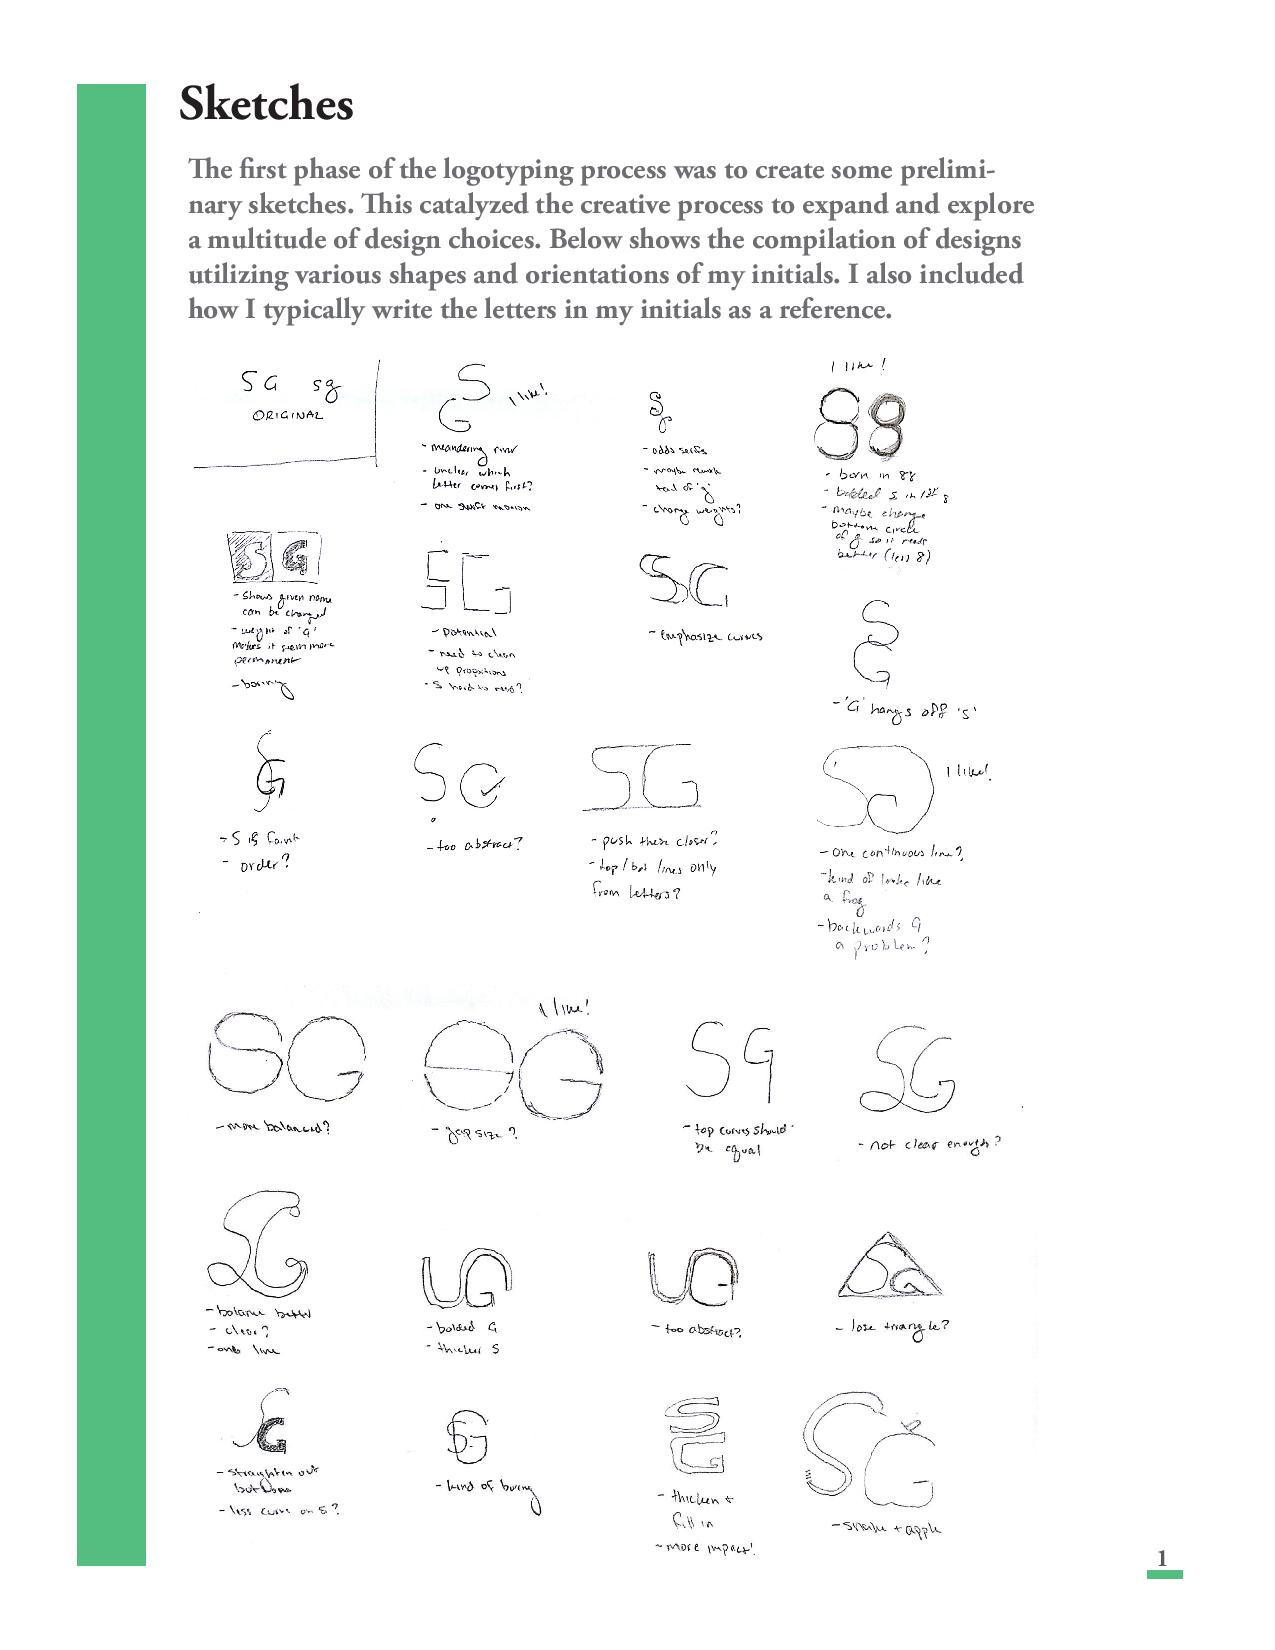 Sketches
The first phase of the logotyping process was to create some prelimi-
nary sketches. This catalyzed the creative process to expand and explore
a multitude of design choices. Below shows the compilation of designs
utilizing various shapes and orientations of my initials. I also included
how I typically write the letters in my initials as a reference.
SG sg
ORIGINAL
SG
I like!
- meandering river
- unclear which
letter comes first?
- one swift motion
Sg
- odds serifs
- maybe rework
tail of 'g'
- change weights?
I like!
88
- born in 88
- bolded S in 1st 8
- maybe change
bottom circle
of g so it reads
better (less 8)
SG
- Shows given name
can be changed
- weight of 'G'
makes it seem more
permanent
- boring
SG
- Potential
- need to clean
up proportions
- S hard to read?
SG
- Emphasize curves
SG
- 'G' hangs off 'S'
SG
- S is faint
- order?
SG
- too abstract?
SG
- push these closer?
- top/bot lines only
from letters?
SG
I like!
- one continuous line?
- kind of looks like
a frog
- backwards G
a problem?
SG
- more balanced?
SG
I like!
- gap size?
SG
- top curves should
be equal
SG
- not clear enough?
SG
- balance better
- clear?
- one line
SG
- bolded G
- thicker S
SG
- too abstract?
SG
- lose triangle?
SG
- straighten out
- less curve on S?
SG
- kind of boring
SG
- thicken +
fill in
- more impact!
SG
- snake + apple
1